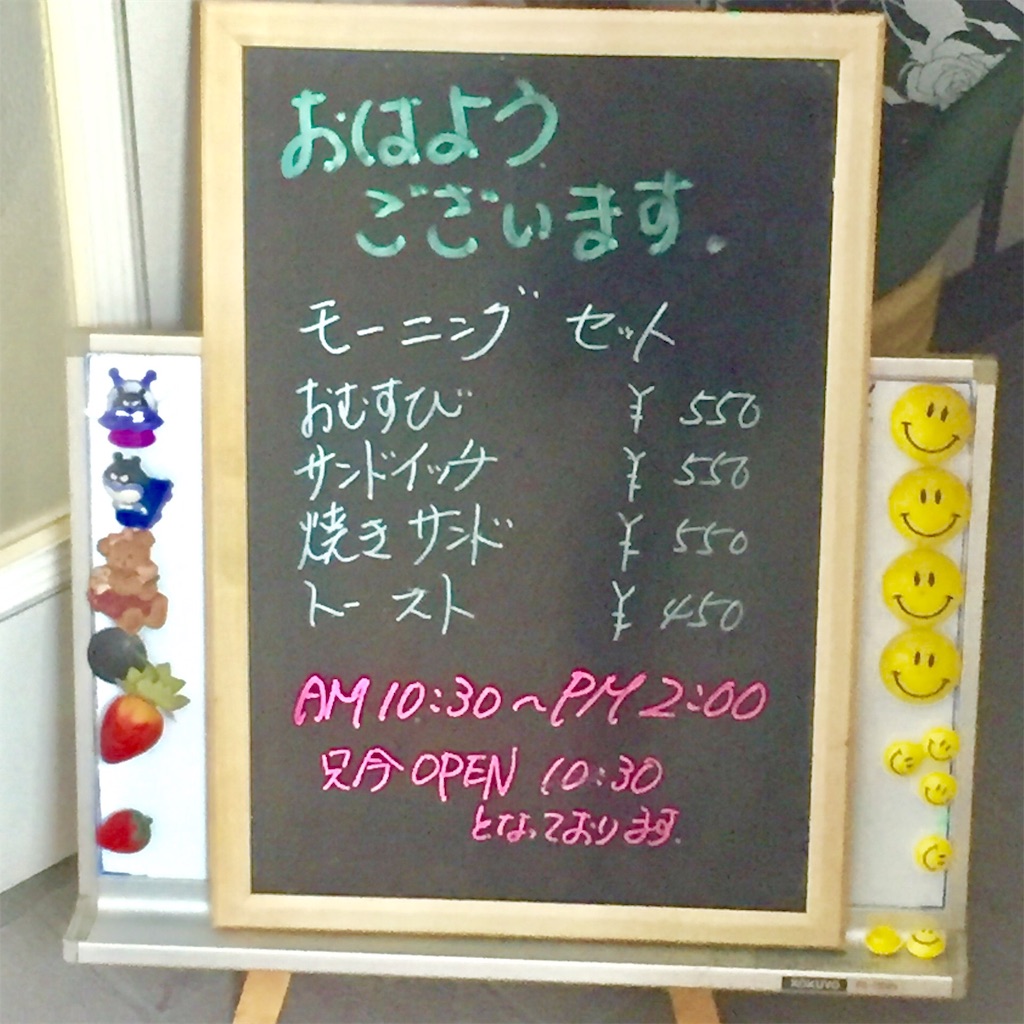 おはよう
ございます.
モーニング セット
おむすび ¥ 550
サンドイッチ ¥ 550
焼きサンド ¥ 550
トースト ¥ 450
AM10:30~PM2:00
只今OPEN 10:30
となっております.
KOKUYO